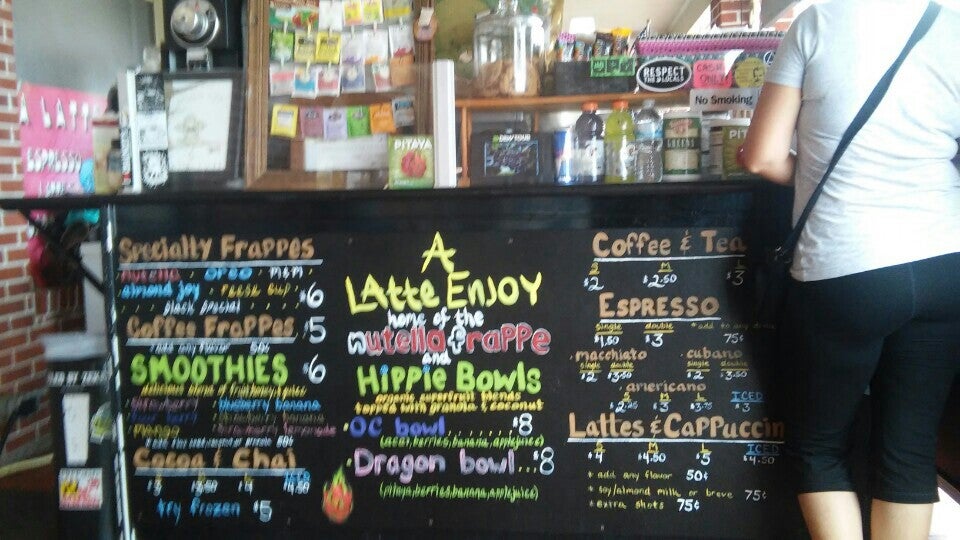 A LATT
ESPRESSO
RESPECT
THE LOCALS
CASH
ONLY
No Smoking
PITAYA
DEW TOUR
GREENS
PIT
Specialty Frappes
nutella · oreo · m&m ·
almond joy · reese cup ·
black special
$6
Coffee Frappes $5
add any flavor 50¢
SMOOTHIES $6
delicious blend of fruit, honey & juice
blueberry banana
mango
strawberry lemonade
50¢
Cocoa & Chai
ICED
$3 $3.50 $4 $4.50
try frozen $5
A
LAtte EnJOY
home of the
nutella frappe
and
Hippie Bowls
organic superfruit blends
topped with granola & coconut
OC bowl ...... $8
(acai, berries, banana, apple juice)
Dragon bowl... $8
(pitaya, berries, banana, apple juice)
Coffee & Tea
S M L
$2 $2.50 $3
ESPRESSO
single double + add to any drink
$1.50 $3 75¢
macchiato cubano
single double single double
$2 $3.50 $2 $3.50
americano
S M L ICED
$2.25 $3 $3.75 $3
Lattes & CAPPuccin
S M L ICED
$4 $4.50 $5 $4.50
+ add any flavor 50¢
+ soy/almond milk or breve 75¢
+ extra shots 75¢